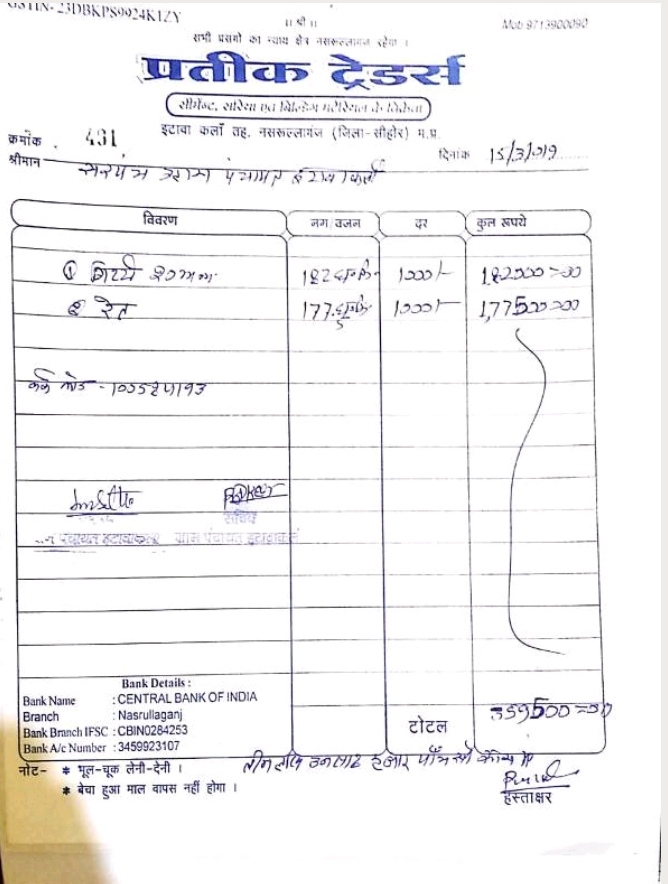 GSTIN- 23DBKPS9924K1ZY
॥ श्री ॥
Mob 9713900090
सभी प्रसंगो का न्याय क्षेत्र नसरूल्लागंज रहेगा ।
प्रतीक ट्रेडर्स
सीमेन्ट, सरिया एवं बिल्डिंग मटेरियल के विक्रेता
इटावा कलाँ तह. नसरूल्लागंज (जिला-सीहोर) म.प्र.
क्रमांक . 431
दिनांक 15/3/019
श्रीमान सरपंच ग्राम पंचायत इटावा कलाँ
विवरण नग/वजन दर कुल रूपये
① गिट्टी 20 mm 182 1000/- 1,82000=00
② रेत 177.5 1000/- 1,77500=00
वर्क कोड - 100524193
सचिव
पंचायत इटावाकला ग्राम पंचायत इटावाकलां
Bank Details :
Bank Name : CENTRAL BANK OF INDIA
Branch : Nasrullaganj
Bank Branch IFSC : CBIN0284253
Bank A/c Number : 3459923107
टोटल 359500=00
नोट- * भूल-चूक लेनी-देनी ।
तीन लाख उनसाठ हजार पाँच सौ
* बेचा हुआ माल वापस नहीं होगा ।
हस्ताक्षर